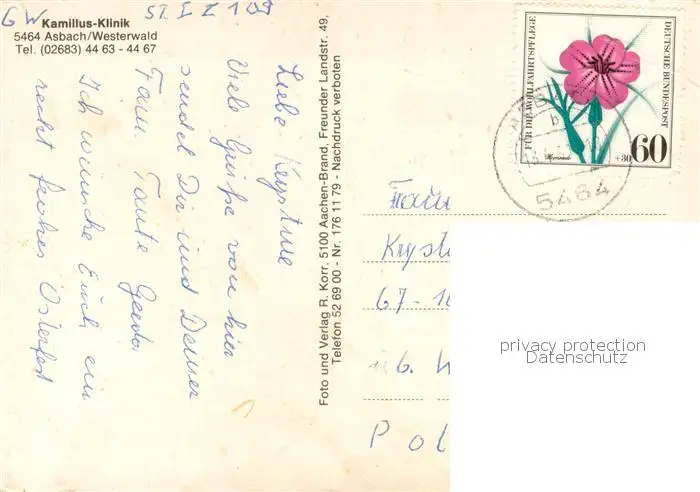 GW
Kamillus-Klinik
5464 Asbach/Westerwald
Tel. (02683) 44 63 - 44 67
Liebe Krystine
Viele Grüße von hier
sendet Dir und Deiner
Fam. Tante Gerda
Ich wünsche Euch ein
recht frohes Osterfest
Foto und Verlag R. Korr. 5100 Aachen-Brand, Freunder Landstr. 49,
Telefon 52 69 00 - Nr. 176 11 79 - Nachdruck verboten
FÜR DIE WOHLFAHRTSPFLEGE
DEUTSCHE BUNDESPOST
+30 60
b
5464
Frau
Kryst
67-10
Pol
privacy protection
Datenschutz